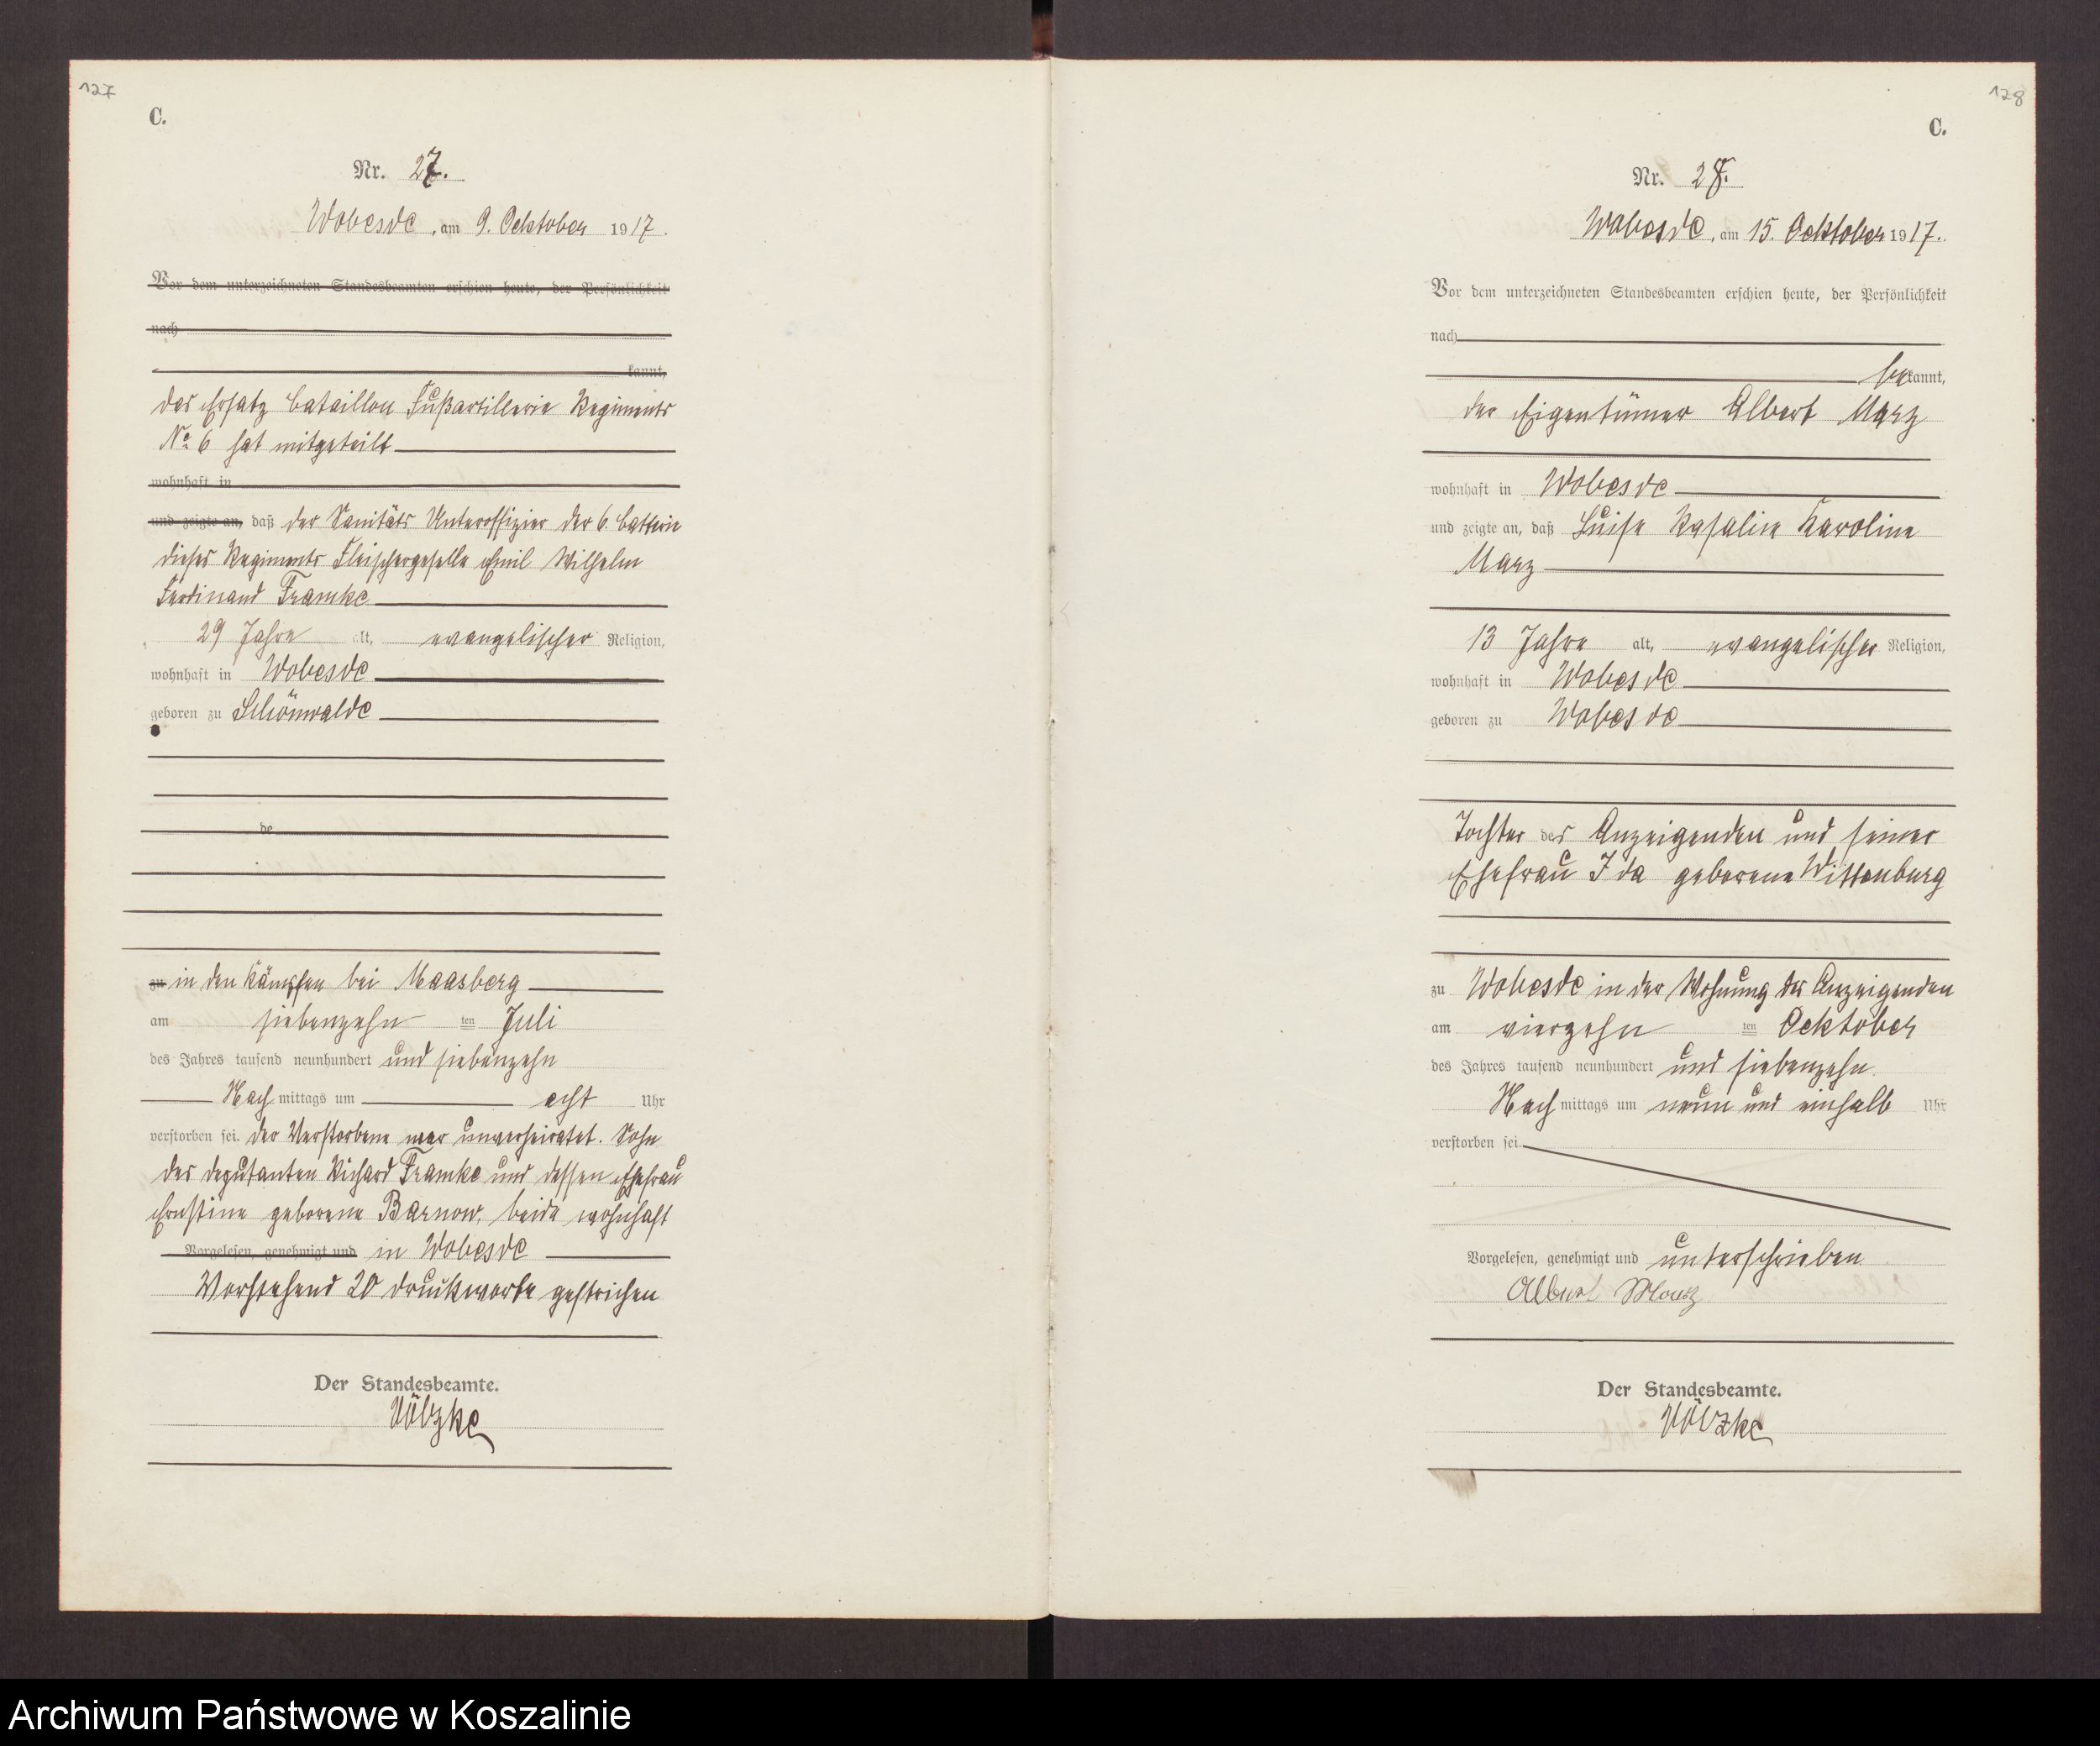 127
C.
Nr. 27.
Wobesde, am 9. Ocktober 1917.
Vor dem unterzeichneten Standesbeamten erschien heute, der Persönlichkeit
nach
kannt,
das Ersatz Bataillon Fußartillerie Regiments
No 6 hat mitgeteilt
wohnhaft in
und zeigte an, daß der Sanitäts Unteroffizier der 6. Batterie
dieses Regiments Fleischergeselle Emil Wilhelm
Ferdinand Framke
29 Jahre alt, evangelischer Religion,
wohnhaft in Wobesde
geboren zu Schönwalde
de
zu in den Kämpfen bei Maasberg
am siebenzehn ten Juli
des Jahres tausend neunhundert und siebenzehn
Nach mittags um acht Uhr
verstorben sei. Der Verstorbene war unverheiratet. Sohn
des Deputanten Richard Framke und dessen Ehefrau
Ernstine geborene Barnow, beide wohnhaft
Vorgelesen, genehmigt und in Wobesde
Vorstehend 20 Druckworte gestrichen
Der Standesbeamte.
Völzke
128
C.
Nr. 28.
Wobesde, am 15. Ocktober 1917.
Vor dem unterzeichneten Standesbeamten erschien heute, der Persönlichkeit
nach
bekannt,
der Eigentümer Albert Marz
wohnhaft in Wobesde
und zeigte an, daß Luise Rosalie Karoline
Marz
13 Jahre alt, evangelischer Religion,
wohnhaft in Wobesde
geboren zu Wobesde
Tochter des Anzeigenden und seiner
Ehefrau Ida geborene Wittenburg
zu Wobesde in der Wohnung des Anzeigenden
am vierzehn ten Ocktober
des Jahres tausend neunhundert und siebenzehn
Nach mittags um neun und einhalb Uhr
verstorben sei.
Vorgelesen, genehmigt und unterschrieben
Albert Marz
Der Standesbeamte.
Völzke
Archiwum Państwowe w Koszalinie